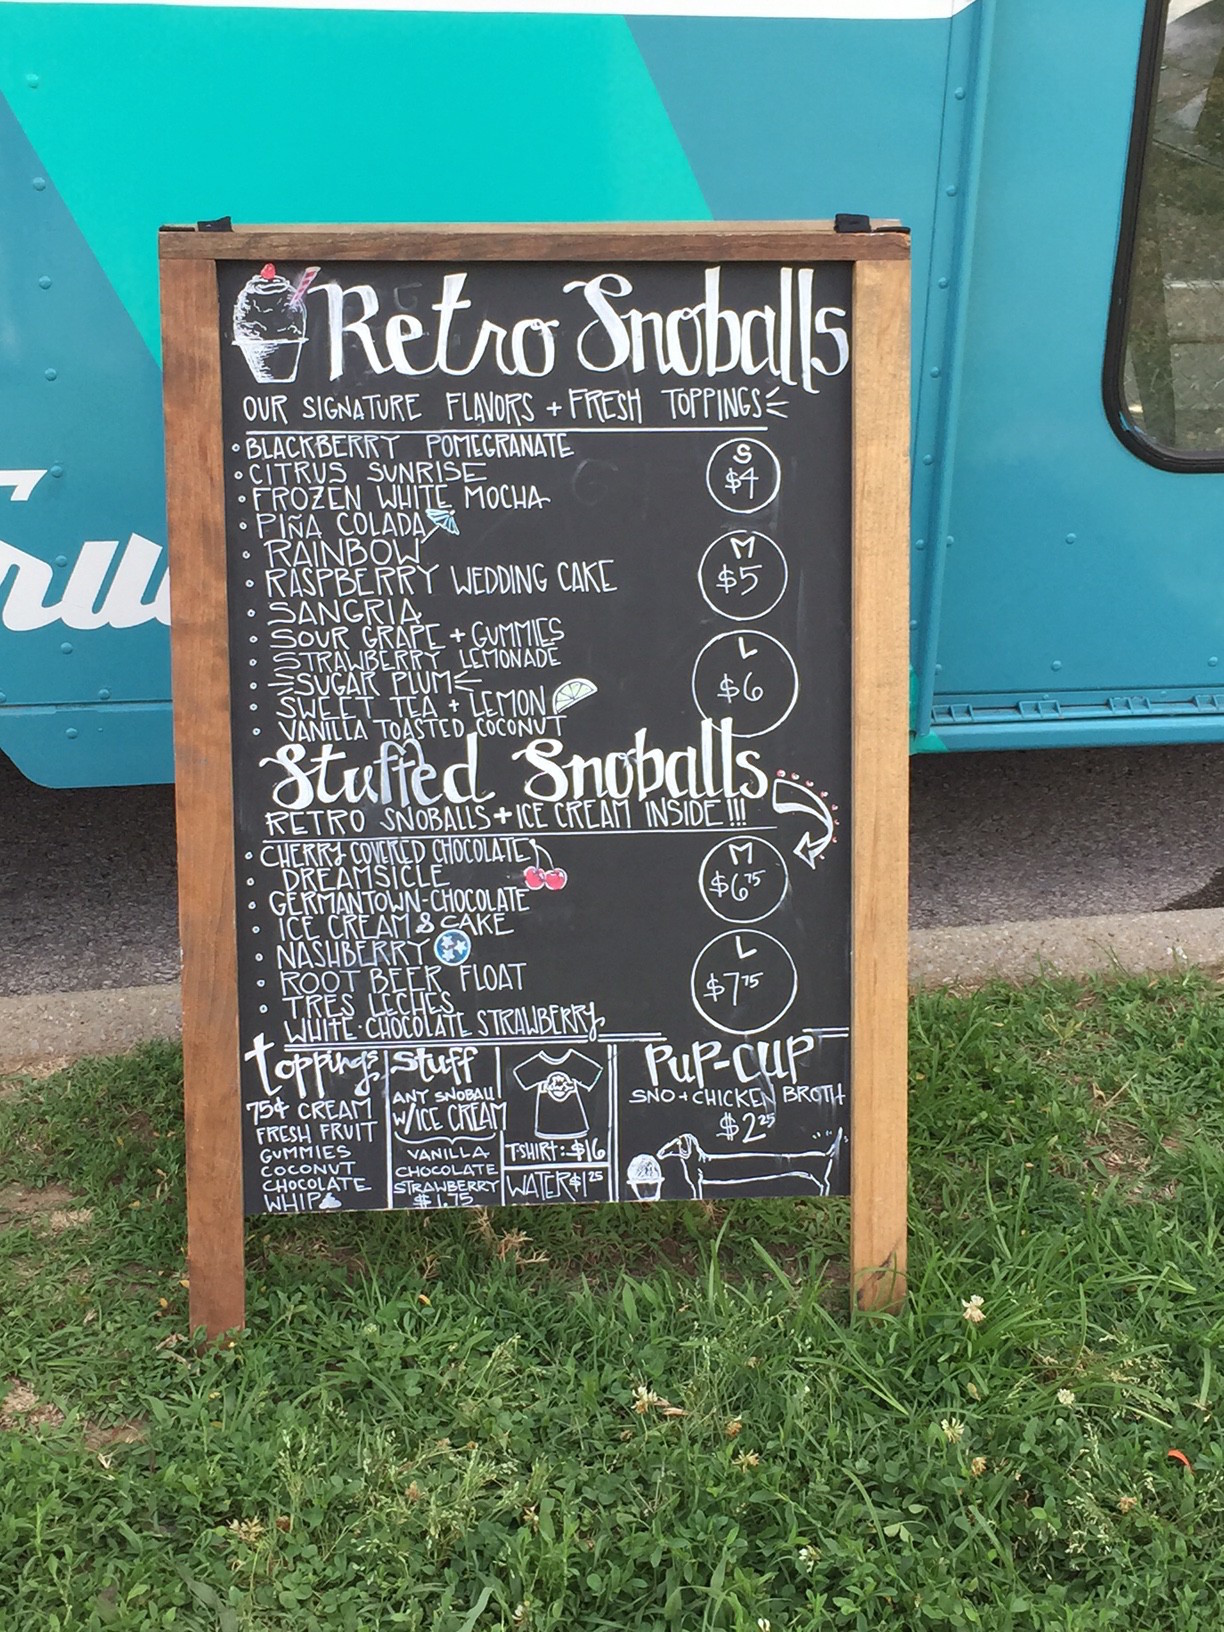 Retro Snoballs
OUR SIGNATURE FLAVORS + FRESH TOPPINGS
• BLACKBERRY POMEGRANATE
• CITRUS SUNRISE
• FROZEN WHITE MOCHA
• PIÑA COLADA
• RAINBOW
• RASPBERRY WEDDING CAKE
• SANGRIA
• SOUR GRAPE + GUMMIES
• STRAWBERRY LEMONADE
• SUGAR PLUM
• SWEET TEA + LEMON
• VANILLA TOASTED COCONUT
S
$4
M
$5
L
$6
Stuffed Snoballs
RETRO SNOBALLS + ICE CREAM INSIDE!!!
• CHERRY COVERED CHOCOLATE
• DREAMSICLE
• GERMANTOWN-CHOCOLATE
• ICE CREAM & CAKE
• NASHBERRY
• ROOT BEER FLOAT
• TRES LECHES
• WHITE-CHOCOLATE STRAWBERRY
M
$6.75
L
$7.75
toppings
75¢ CREAM
FRESH FRUIT
GUMMIES
COCONUT
CHOCOLATE
WHIP
stuff
ANY SNOBALL
W/ICE CREAM
VANILLA
CHOCOLATE
STRAWBERRY
$1.75
T-SHIRT: $16
WATER $1.25
PUP-CUP
SNO + CHICKEN BROTH
$2.25